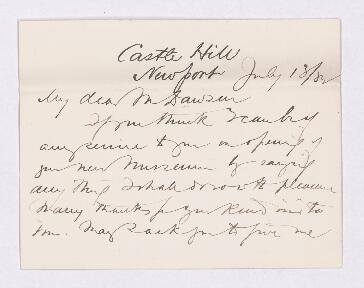 Castle Hill
Newport July 13/82
My dear Mr Dawson
If you think I can be of
any service to you on opening of
your new Museum by saying
any thing I shall do so with pleasure
Many thanks for your kind
May I ask you to give me